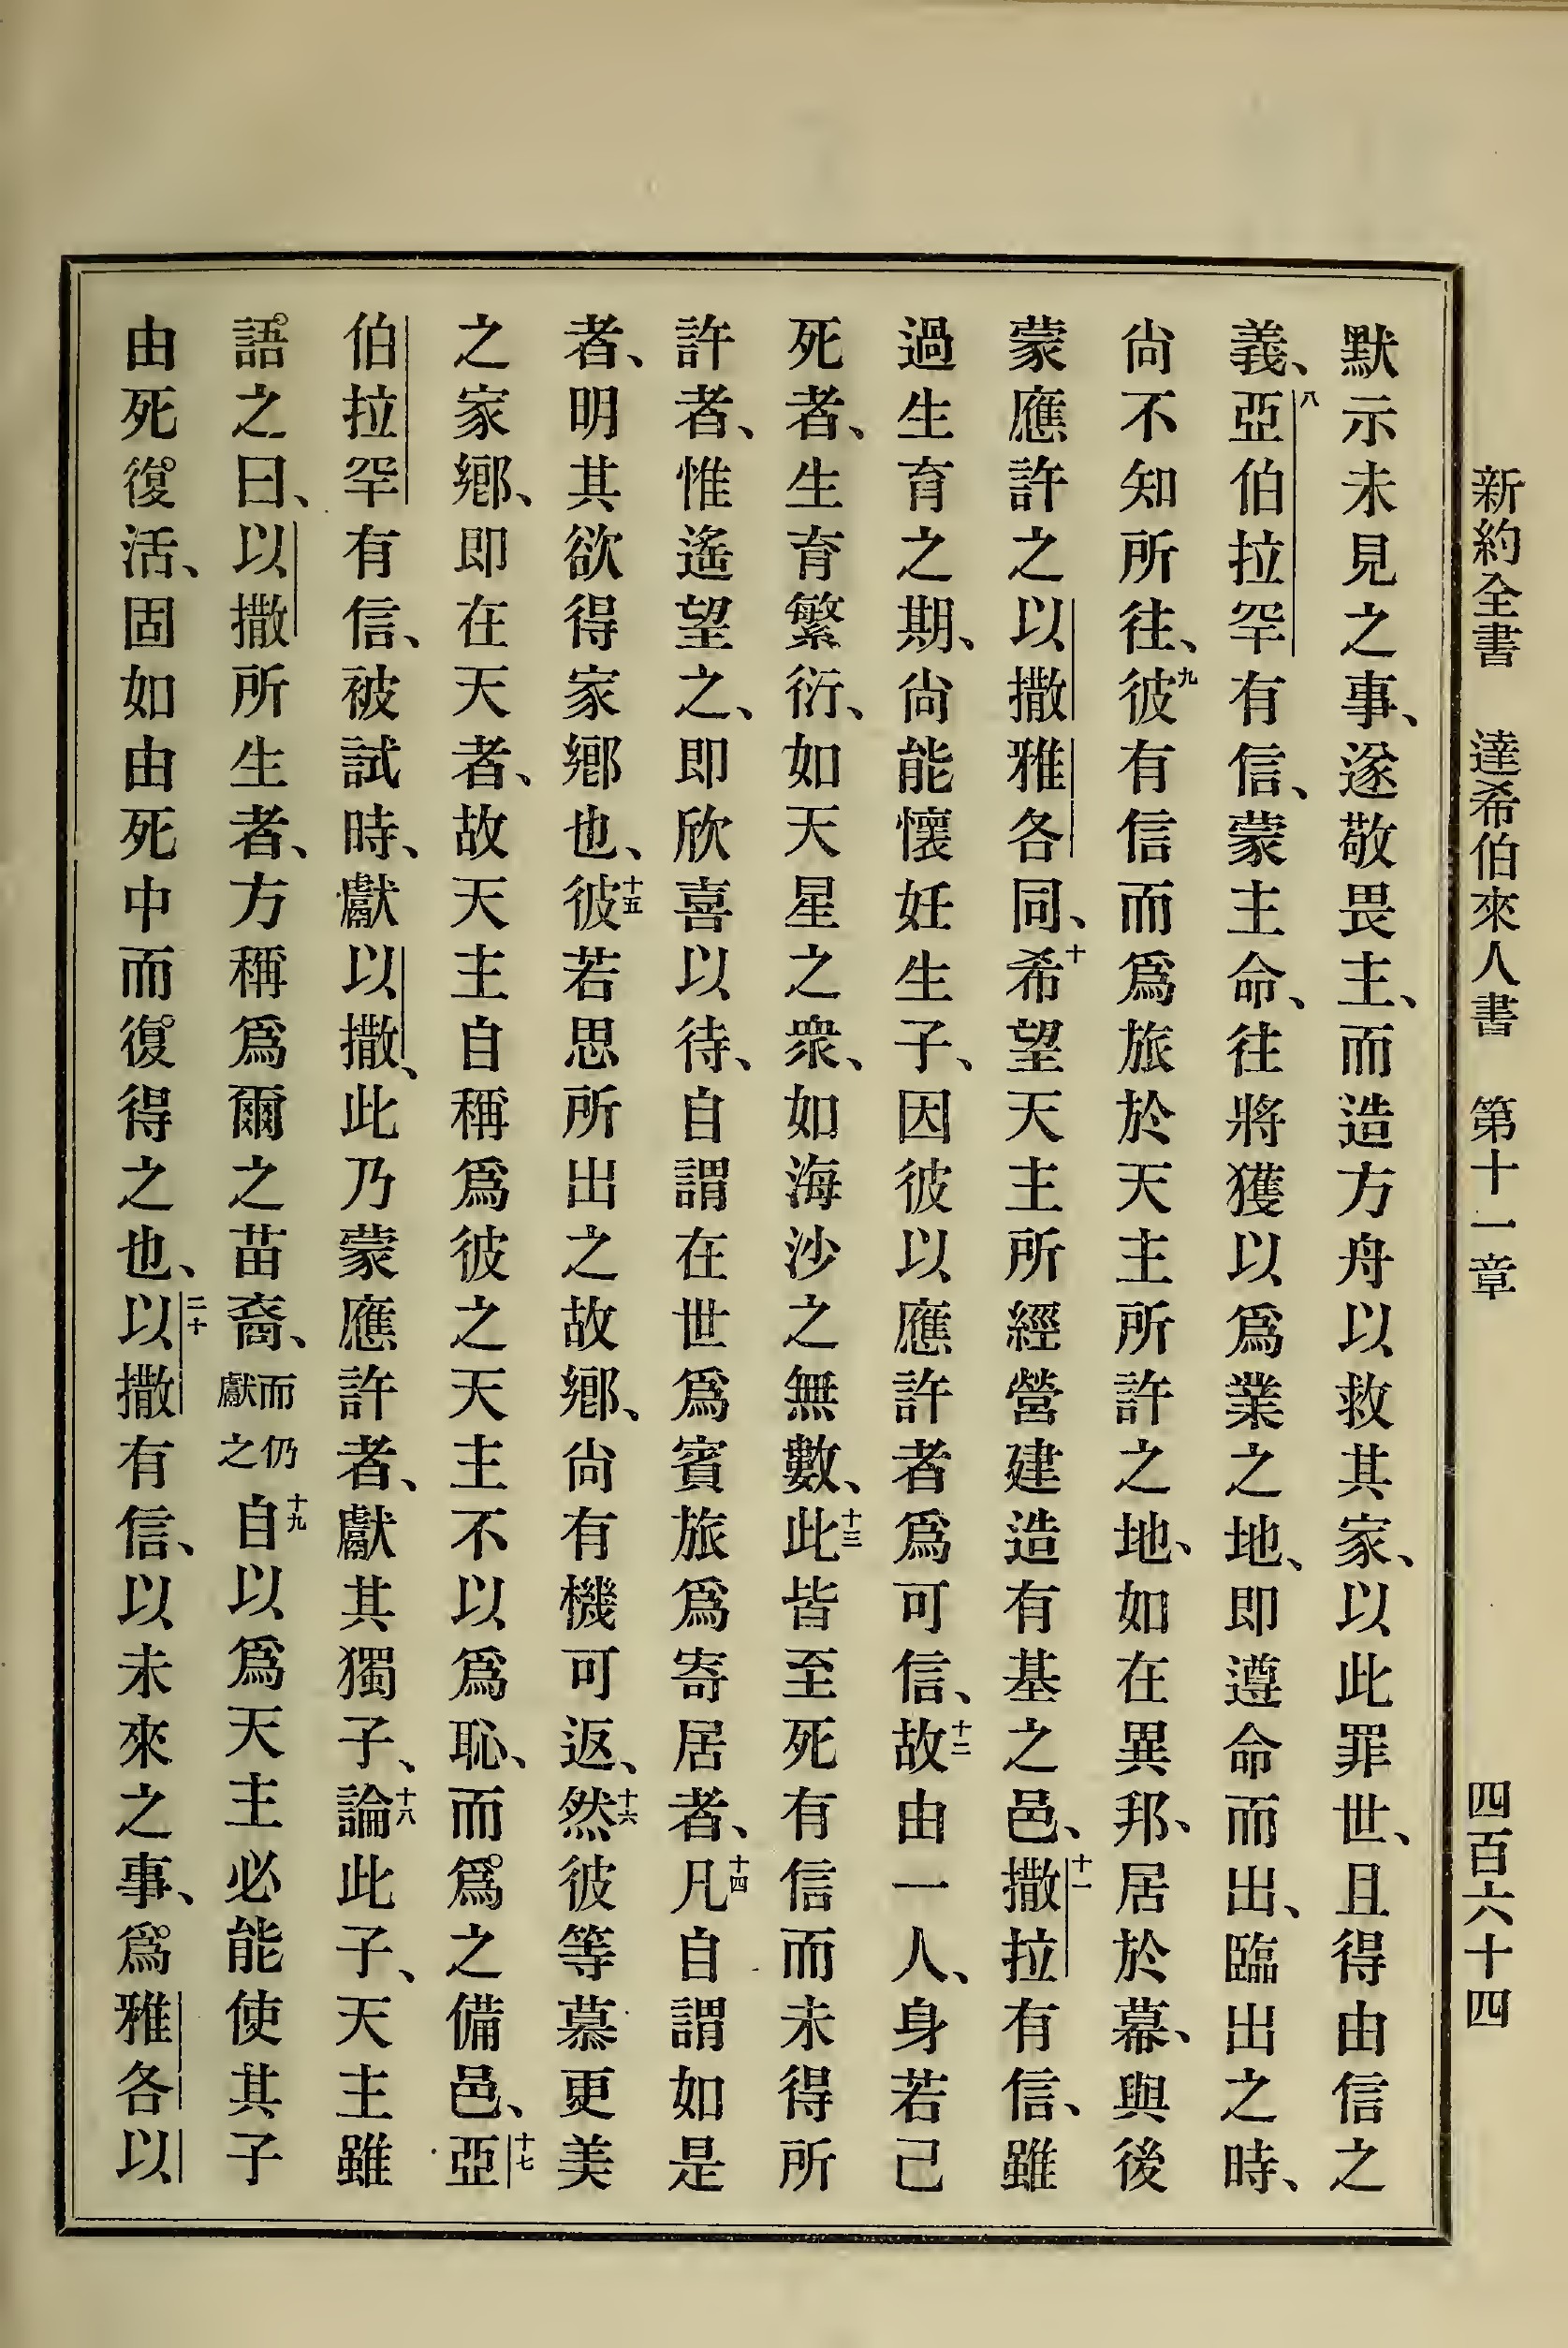 新約全書 達希伯來人書 第十一章 四百六十四
默示未見之事、遂敬畏主、而造方舟以救其家、以此罪世、且得由信之
義、八亞伯拉罕有信、蒙主命、往將獲以爲業之地、即遵命而出、臨出之時、
尙不知所往、九彼有信而爲旅於天主所許之地、如在異邦、居於幕、與後
蒙應許之以撒雅各同、十希望天主所經營建造有基之邑、十一撒拉有信、雖
過生育之期、尙能懷妊生子、因彼以應許者爲可信、十二故由一人、身若己
死者、生育繁衍、如天星之衆、如海沙之無數、十三此皆至死有信而未得所
許者、惟遙望之、即欣喜以待、自謂在世爲賓旅爲寄居者、十四凡自謂如是
者、明其欲得家鄕也、十五彼若思所出之故鄕、尙有機可返、十六然彼等慕更美
之家鄕、即在天者、故天主自稱爲彼之天主不以爲恥、而爲之備邑、十七亞
伯拉罕有信、被試時、獻以撒、此乃蒙應許者、獻其獨子、十八論此子、天主雖
語之曰、以撒所生者、方稱爲爾之苗裔、而仍獻之十九自以爲天主必能使其子
由死復活、固如由死中而復得之也、二十以撒有信、以未來之事、爲雅各以